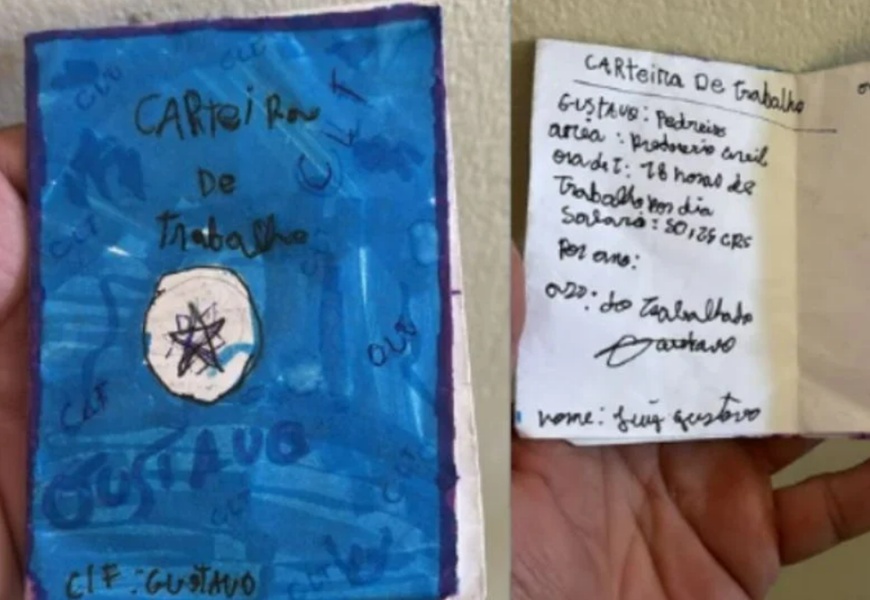 CLT
CLT
CLT
CARTEiRa
De
Trabalho
CLT
CLT
CLT
GUSTAVO
CLT
CLT
CIF: GUSTAVO
CARTEiRA De Trabalho
GUSTAVO: Pedreiro
area :
18 horas de
Trabalho Por dia
Salario: 50,25 CRS
Por ano:
do Trabalhado
Gustavo
nome: Luiz Gustavo